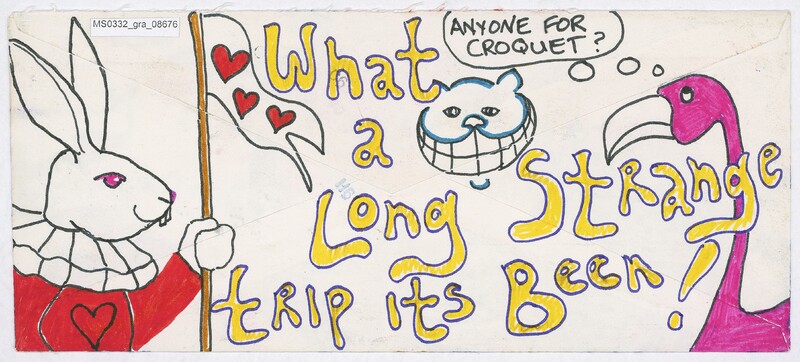 MS0332_gra_08676
ANYONE FOR
CROQUET?
What
a
Long Strange
trip its Been!